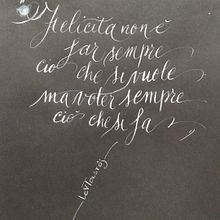 Felicità non è
far sempre
ciò che si vuole
ma voler sempre
ciò che si fa